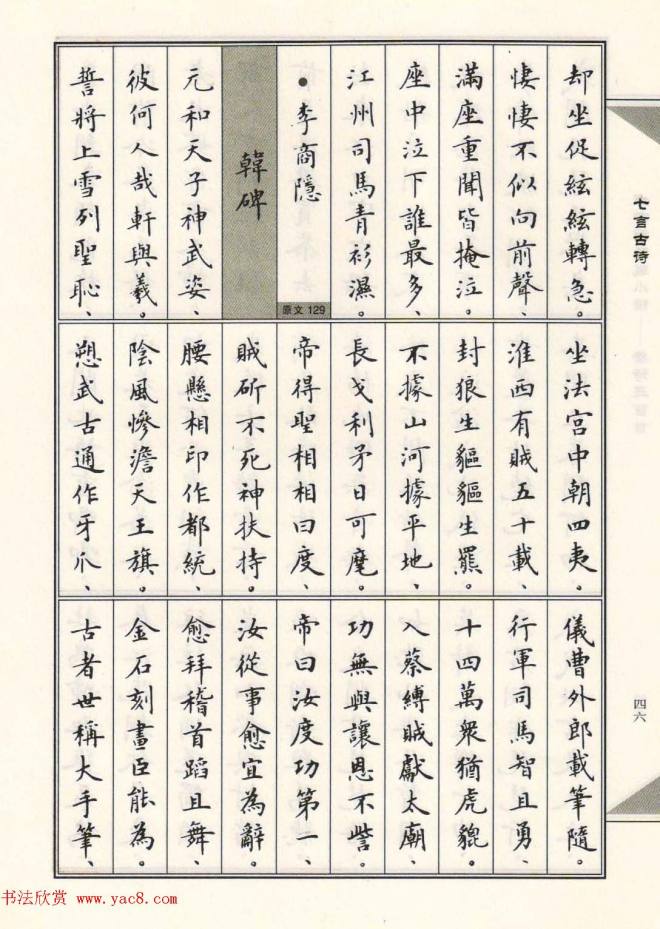 却坐促絃絃轉急。
悽悽不似向前聲、
滿座重聞皆掩泣。
座中泣下誰最多、
江州司馬青衫濕。
•李商隱
原文129
韓碑
元和天子神武姿、
彼何人哉軒與羲。
誓將上雪列聖恥、
坐法宮中朝四夷。
淮西有賊五十載、
封狼生貙貙生羆。
不據山河據平地、
長戈利矛日可麾。
帝得聖相相曰度、
賊斫不死神扶持。
腰懸相印作都統、
陰風慘澹天王旗。
愬武古通作牙爪、
儀曹外郎載筆隨。
行軍司馬智且勇、
十四萬衆猶虎貔。
入蔡縛賊獻太廟、
功無與讓恩不訾。
帝曰汝度功第一、
汝從事愈宜為辭。
愈拜稽首蹈且舞、
金石刻畫臣能為。
古者世稱大手筆、
七言古诗
四六
书法欣赏 www.yac8.com